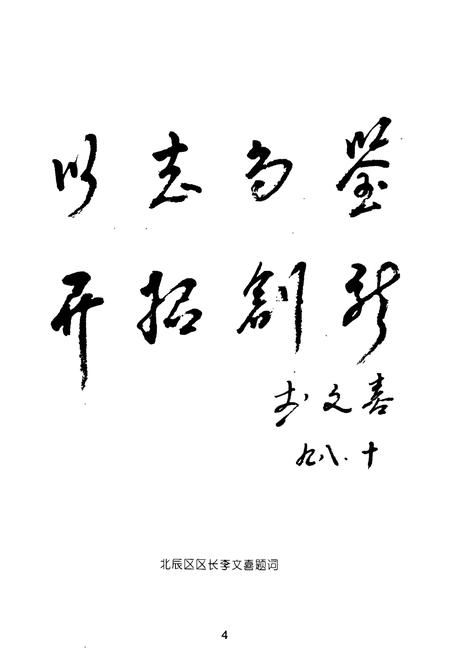 以志为鉴
开拓創新
李文喜
九八.十
北辰区区长李文喜题词
4